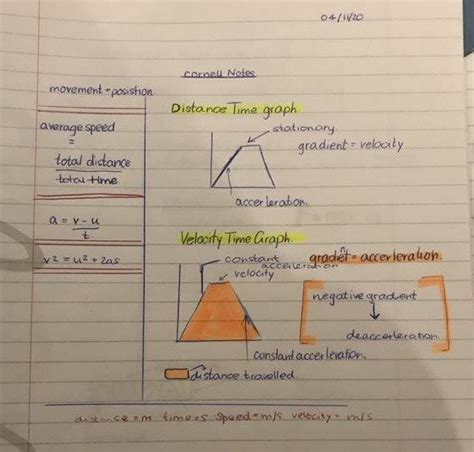 04/11/20
Cornell Notes
movement = posistion
average speed
=
total distance
total time
a = v - u
t.
v2 = u2 + 2as
Distance Time graph
stationary
gradient = velocity
accerleration.
Velocity Time Graph.
constant
accerleration
velocity
gradent = accerleration.
negative gradient
deaccerleration
constant accerleration.
distance travelled
distance = m time = s speed = m/s velocity = m/s